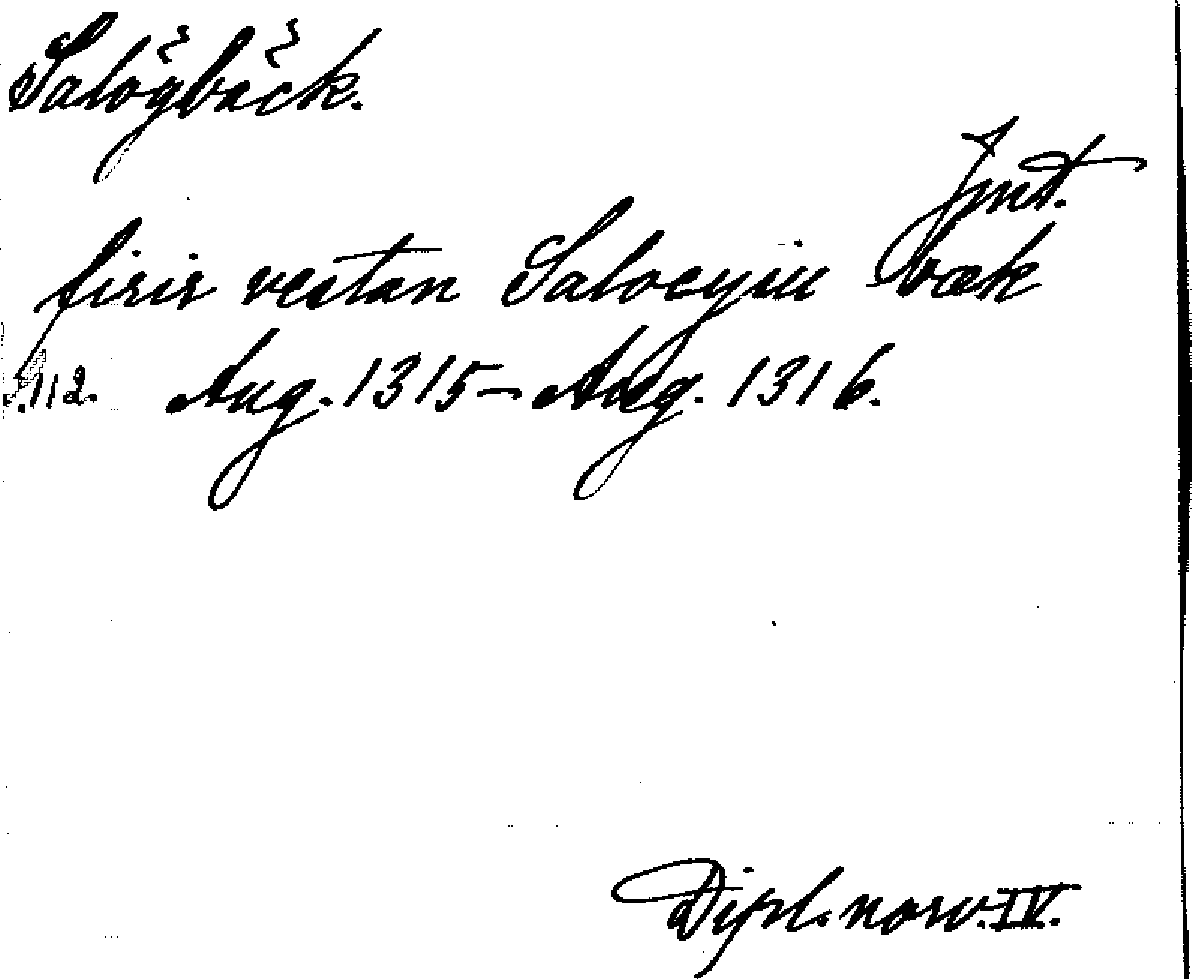 Salögbäck.
Jmt.
firir vestan Saloeyiu bæk
s. 112. Aug. 1315 – Aug. 1316.
Dipl. norv. IV.